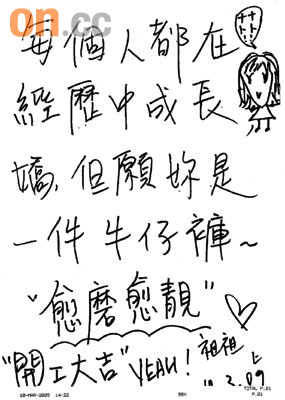 on.cc
每個人都在
經歷中成長
嬌,但願妳是
一件牛仔褲~
"愈磨愈靚"
"開工大吉" YEAH! 祖祖
in 2.09
10-MAR-2009 14:22 99% TOTAL P.01
P.01